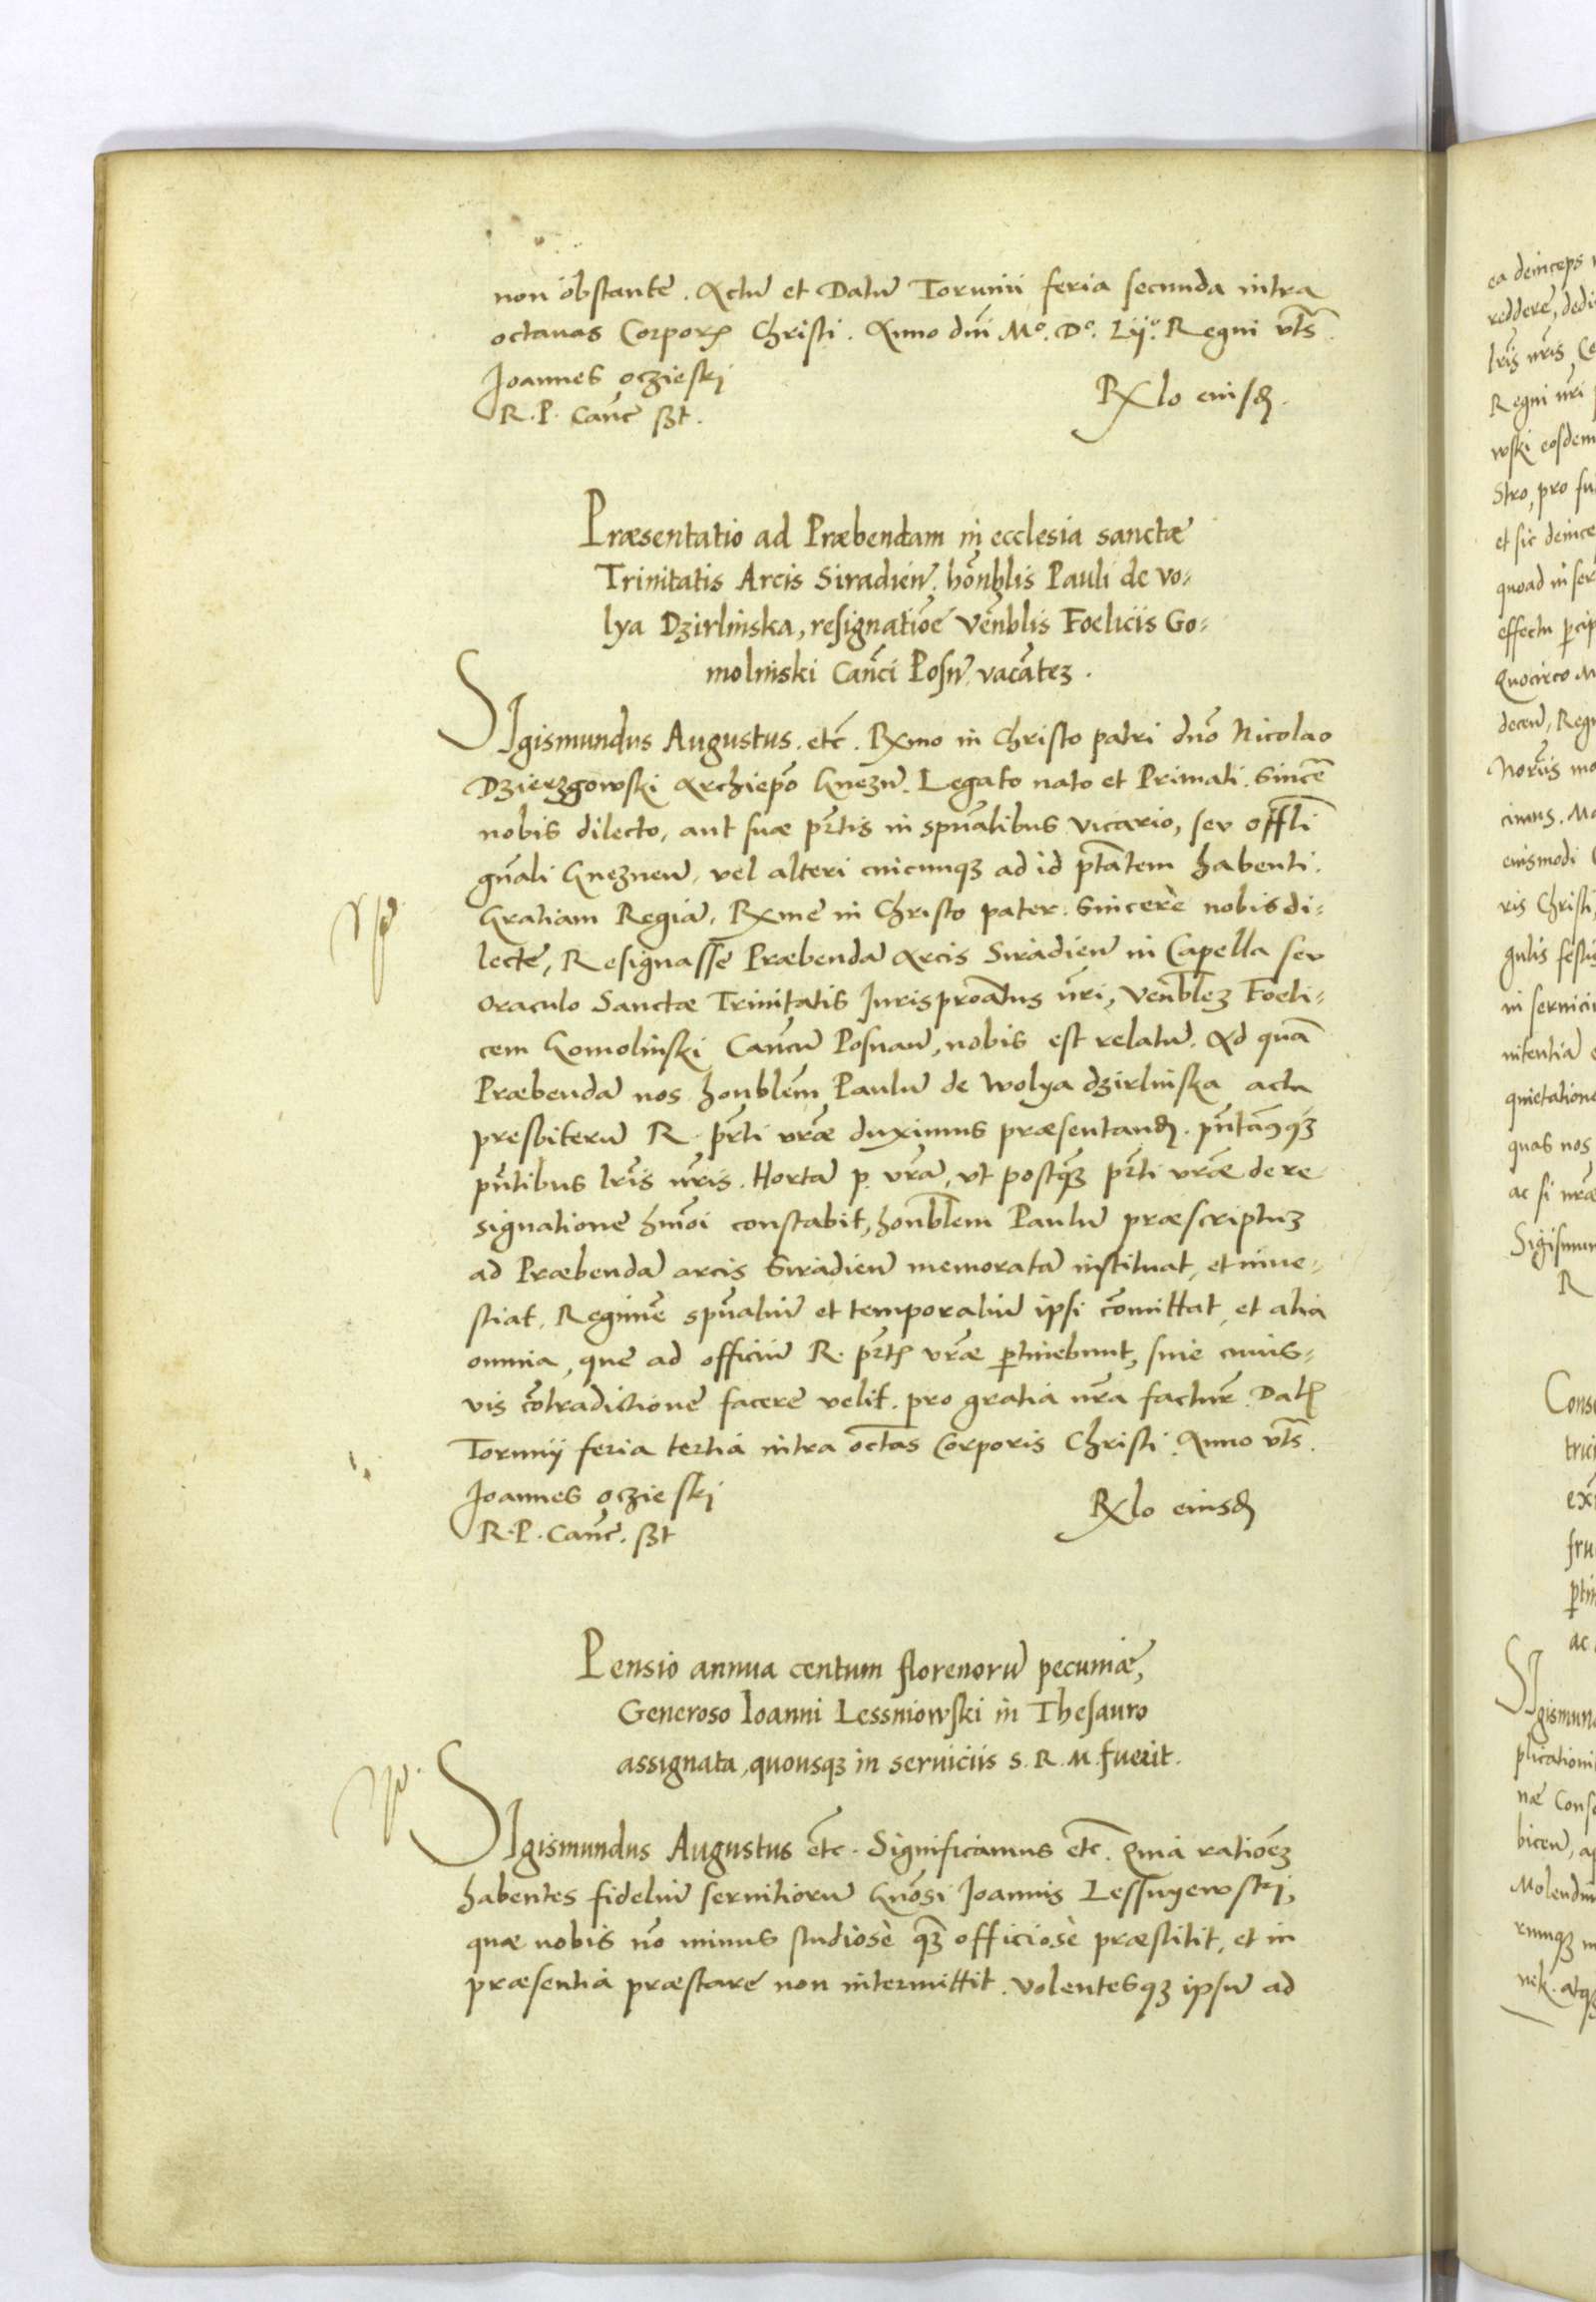 non obstante. Actū et Datū Torunii feria secunda intra
octauas Corporꝭ Christi. Anno dnī Mº. Dº. Lijº. Regni vts̄.
Joannes oczieski
R. P. Canc̄ sszt.
Rx̄lo eiusd̄.
Præsentatio ad Præbendam in ecclesia sanctæ
Trinitatis Arcis Siradien̄. hōnblis Pauli de vo-
lya Dzirlinska, resignatiōe vēnblis Foelicis Go-
molinski Canc̄i Posn̄. vacātez.
Sigismundus Augustus. etc̄. Rx̄mo in Christo patri dnō Nicolao
Dzierzgowski Archiepō Gnezn̄. Legato nato et Primati. Sincē
nobis dilecto, aut suæ pr̄tis in spūalibus vicario, seu offl̄i
gn̄ali Gneznen̄, vel alteri cuicunqꝫ ad id ptātem habenti.
Gratiam Regiā. Rx̄me in Christo pater. Sincerè nobis di-
lecte, Resignasse Præbendā Arcis Siradien̄ in Capella seu
oraculo Sanctæ Trinitatis Jurisproātus nr̄i, Venblēꝫ Foeli-
cem Gomolinski Canc̄ū Posnan̄, nobis est relatū. Ad quā
Præbendā nos honblēm Paulū de Wolya dzirlinska actu
presbiterū R. pr̄ti vr̄æ duximus præsentand̄. pn̄tāqꝫ
pn̄tibus lr̄is nr̄is. Hortā p. vr̄ā, vt postqꝫ̄ pr̄ti vr̄æ de re
signatione hmōi constabit, honblēm Paulū præscriptuꝫ
ad Præbendā arcis Siradien̄ memoratā instituat, et inue-
stiat, Regimē spūaliū et temporaliū ipsi cōmittat, et alia
omnia, que ad officiū R. pr̄tꝭ vr̄æ ꝑtinebunt, sine cuius-
vis cōtradictione facere velit. pro gratia nr̄a facturē. Datꝭ
Torunij feria tertia intra octās Corporis Christi. Anno vts̄.
Joannes oczieski
R. P. Canc̄. sszt
Rx̄lo eiusd̄
Pensio annua centum florenorū pecuniæ,
Generoso Ioanni Lessniowski in Thesauro
assignata, quousqꝫ in seruiciis S. R. M. fuerit.
Sigismundus Augustus etc̄. Significamus etc̄. Quia ratiōeꝫ
habentes fideliū seruitiorū Gnōsi Joannis Lessnyewski,
quæ nobis nō minus studiosè qꝫ̄ officiosè præstitit, et in
præsentiā præstare non intermittit. Volentesqꝫ ipsū ad